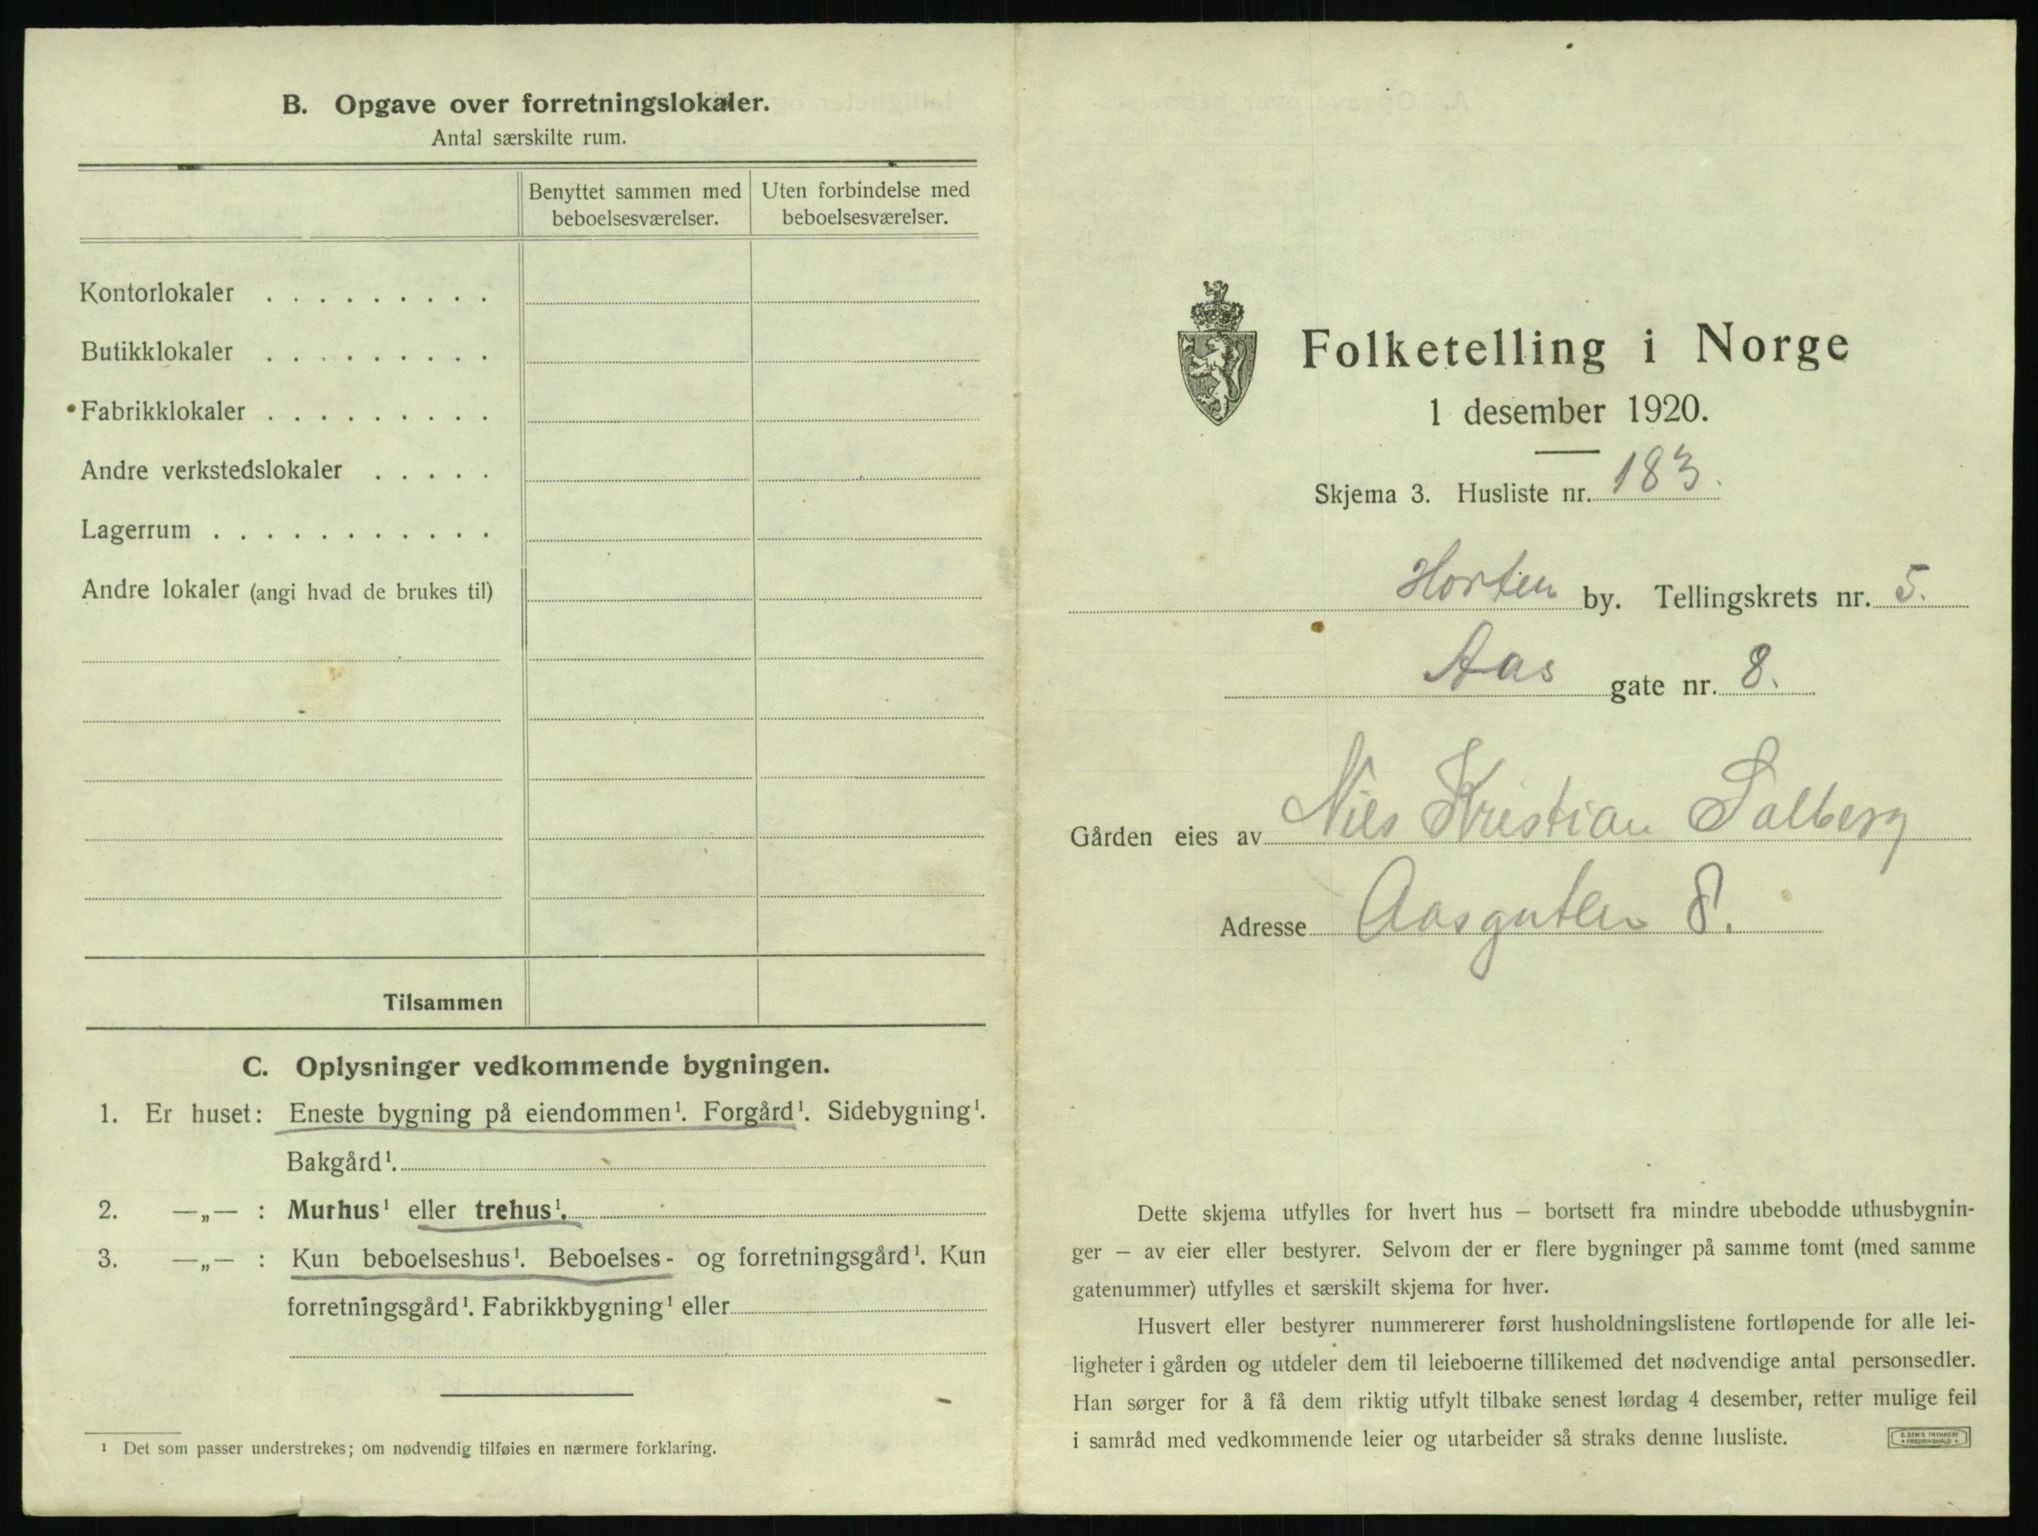 B. Opgave over forretningslokaler.
Antal særskilte rum.
Benyttet sammen med beboelsesværelser.
Uten forbindelse med beboelsesværelser.
Kontorlokaler . . . . . . . . .
Butikklokaler . . . . . . . . .
Fabrikklokaler . . . . . . . . .
Andre verkstedslokaler . . . . .
Lagerrum . . . . . . . . . . .
Andre lokaler (angi hvad de brukes til)
Tilsammen
C. Oplysninger vedkommende bygningen.
1. Er huset: Eneste bygning på eiendommen¹. Forgård¹. Sidebygning¹.
Bakgård¹.
2. —„— : Murhus¹ eller trehus¹.
3. —„— : Kun beboelseshus¹. Beboelses- og forretningsgård¹. Kun
forretningsgård¹. Fabrikkbygning¹ eller
¹ Det som passer understrekes; om nødvendig tilføies en nærmere forklaring.
Folketelling i Norge
1 desember 1920.
Skjema 3. Husliste nr. 183.
Horten by. Tellingskrets nr. 5.
Aas gate nr. 8.
Gården eies av Nils Kristian Solberg
Adresse Aasgaten 8.
Dette skjema utfylles for hvert hus – bortsett fra mindre ubebodde uthusbygnin-
ger – av eier eller bestyrer. Selvom der er flere bygninger på samme tomt (med samme
gatenummer) utfylles et særskilt skjema for hver.
Husvert eller bestyrer nummererer først husholdningslistene fortløpende for alle lei-
ligheter i gården og utdeler dem til leieboerne tillikemed det nødvendige antal personsedler.
Han sørger for å få dem riktig utfylt tilbake senest lørdag 4 desember, retter mulige feil
i samråd med vedkommende leier og utarbeider så straks denne husliste.